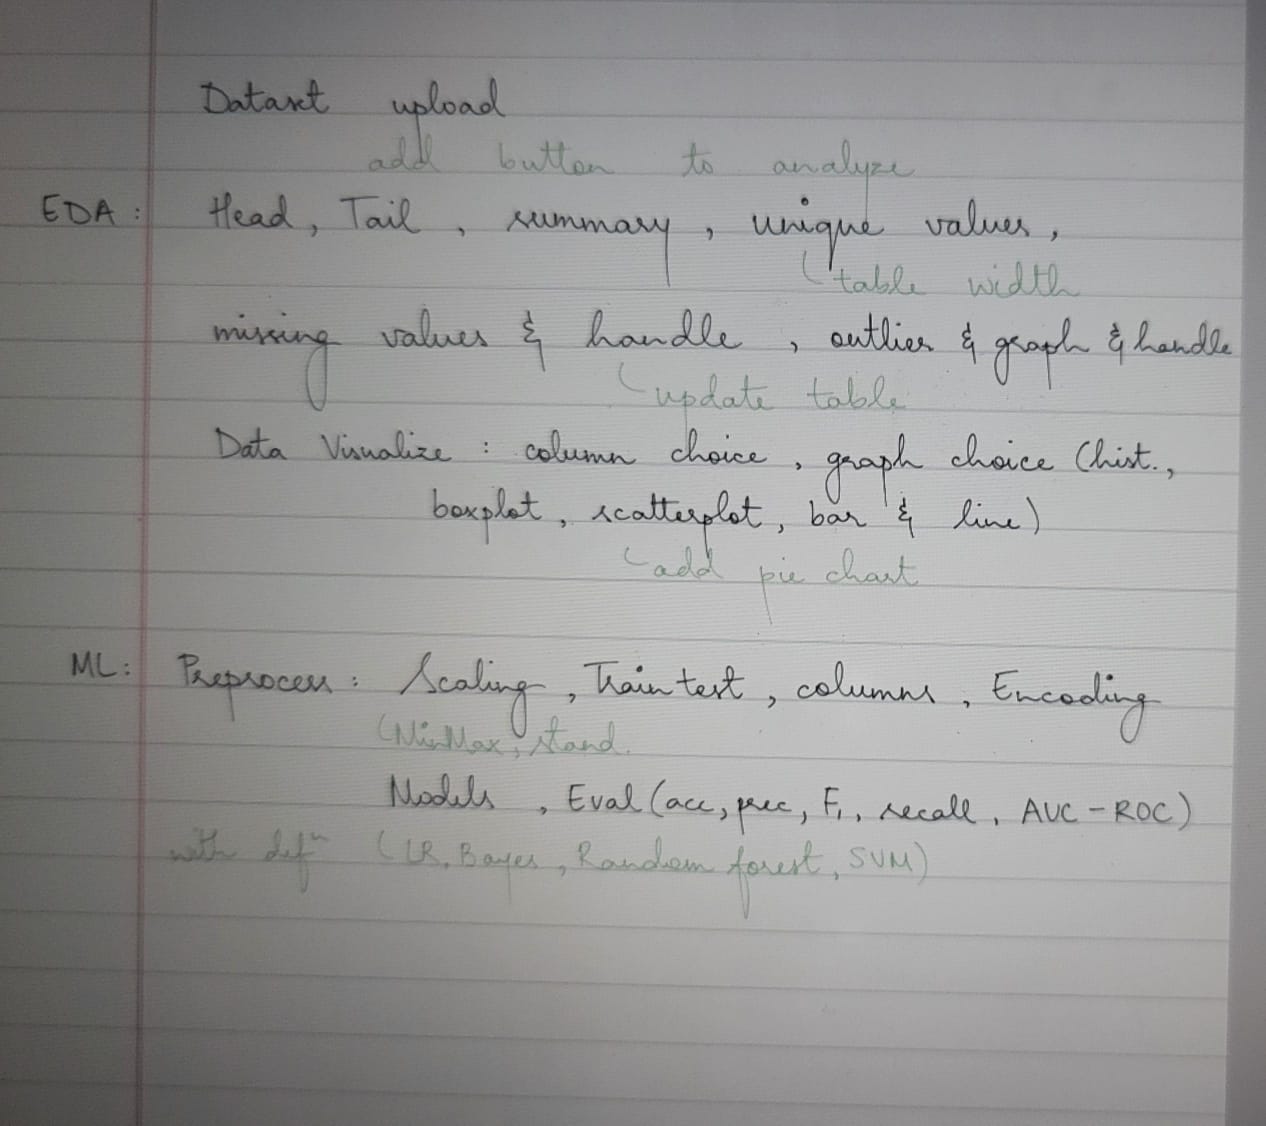 Dataset upload
add button to analyze
EDA : Head, Tail, summary, unique values,
table width
missing values & handle, outlier & graph & handle
update table
Data Visualize : column choice, graph choice (hist.,
boxplot, scatterplot, bar & line)
add pie chart
ML: Preprocess: Scaling, Train test, columns, Encoding
(MinMax, stand.
Models, Eval (acc, prec, F1, recall, AUC-ROC)
with defⁿ (LR, Bayes, Random forest, SVM)